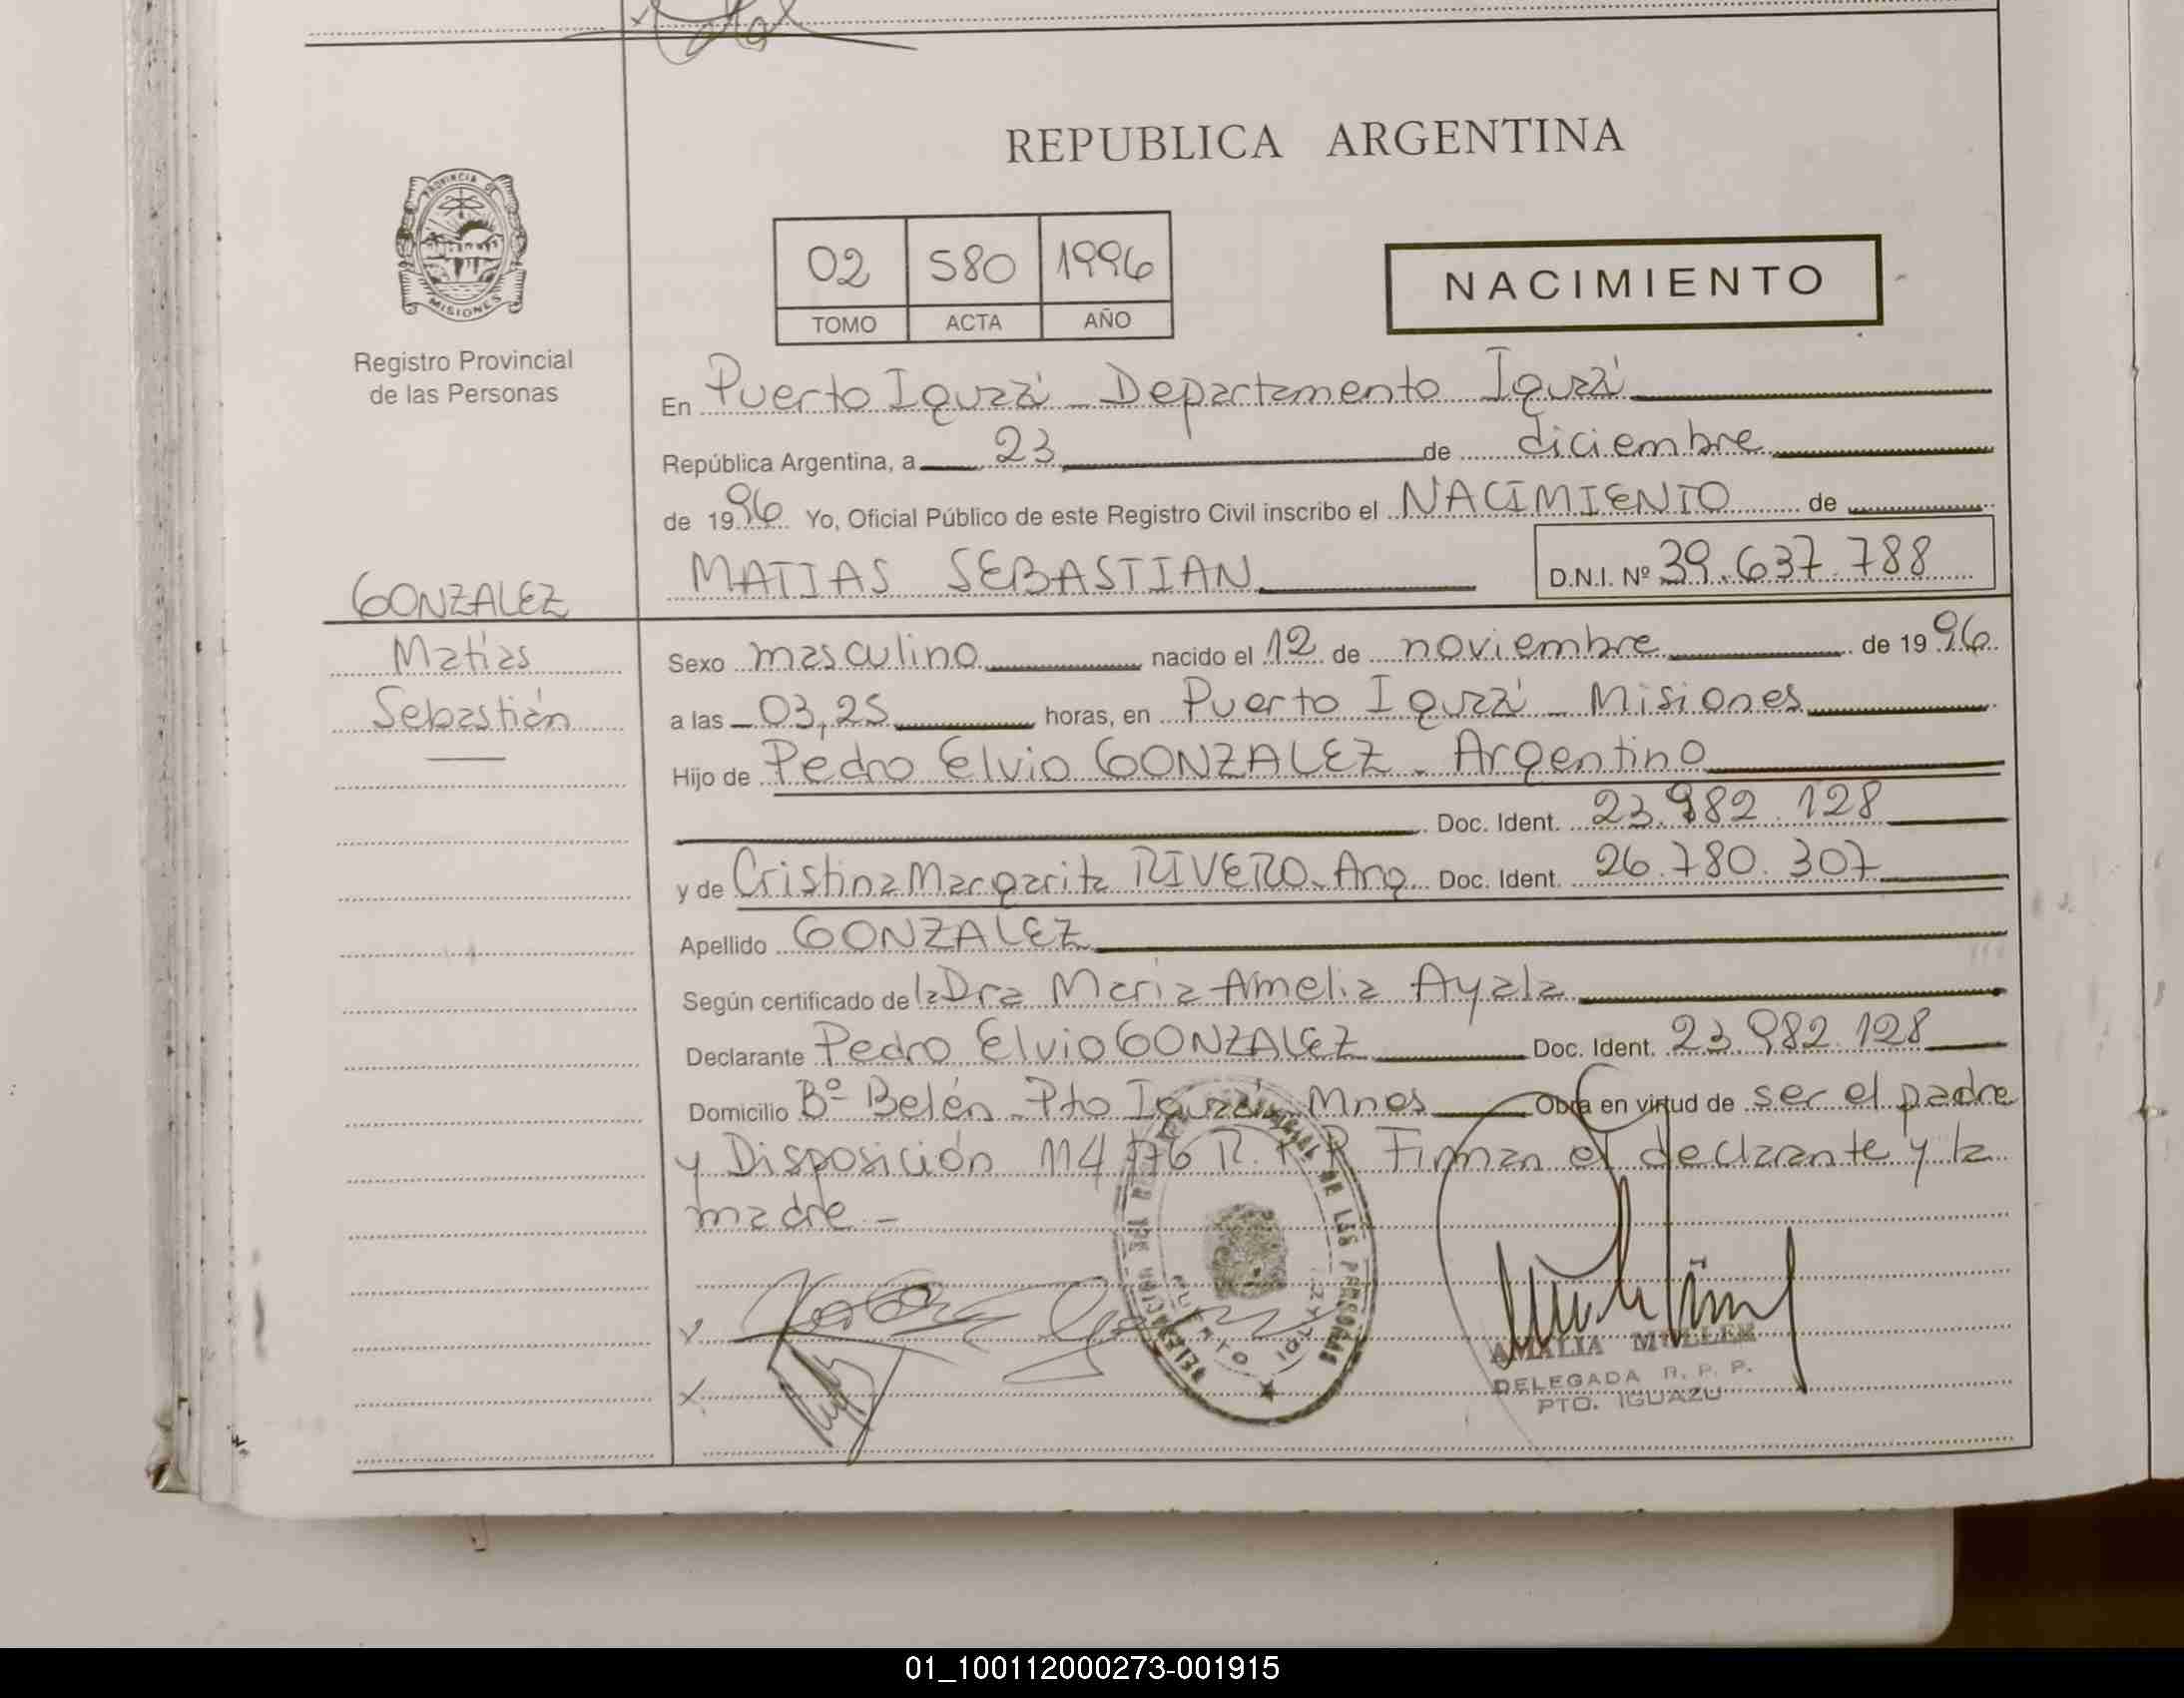 REPUBLICA ARGENTINA
PROVINCIA DE
MISIONES
Registro Provincial
de las Personas
02 580 1996
TOMO ACTA AÑO
NACIMIENTO
En Puerto Iguazú - Departamento Iguazú
República Argentina, a 23 de diciembre
de 1996 Yo, Oficial Público de este Registro Civil inscribo el NACIMIENTO de
MATIAS SEBASTIAN D.N.I. Nº 39.637.788
GONZALEZ
Matías
Sebastián
Sexo masculino nacido el 12 de noviembre de 1996
a las 03,25 horas, en Puerto Iguazú - Misiones
Hijo de Pedro Elvio GONZALEZ - Argentino
Doc. Ident. 23.982.128
y de Cristina Margarita RIVERO - Arg. Doc. Ident. 26.780.307
Apellido GONZALEZ
Según certificado de la Dra Maria Amelia Ayala
Declarante Pedro Elvio GONZALEZ Doc. Ident. 23.982.128
Domicilio Bº Belén - Pto Iguazú - Mnes Obra en virtud de ser el padre
y Disposición 114/76 R.P.P. Firman el declarante y la
madre -
DE LAS PERSONAS
PUERTO IGUAZU
AMALIA MULLER
DELEGADA R. P. P.
PTO. IGUAZU
01_100112000273-001915